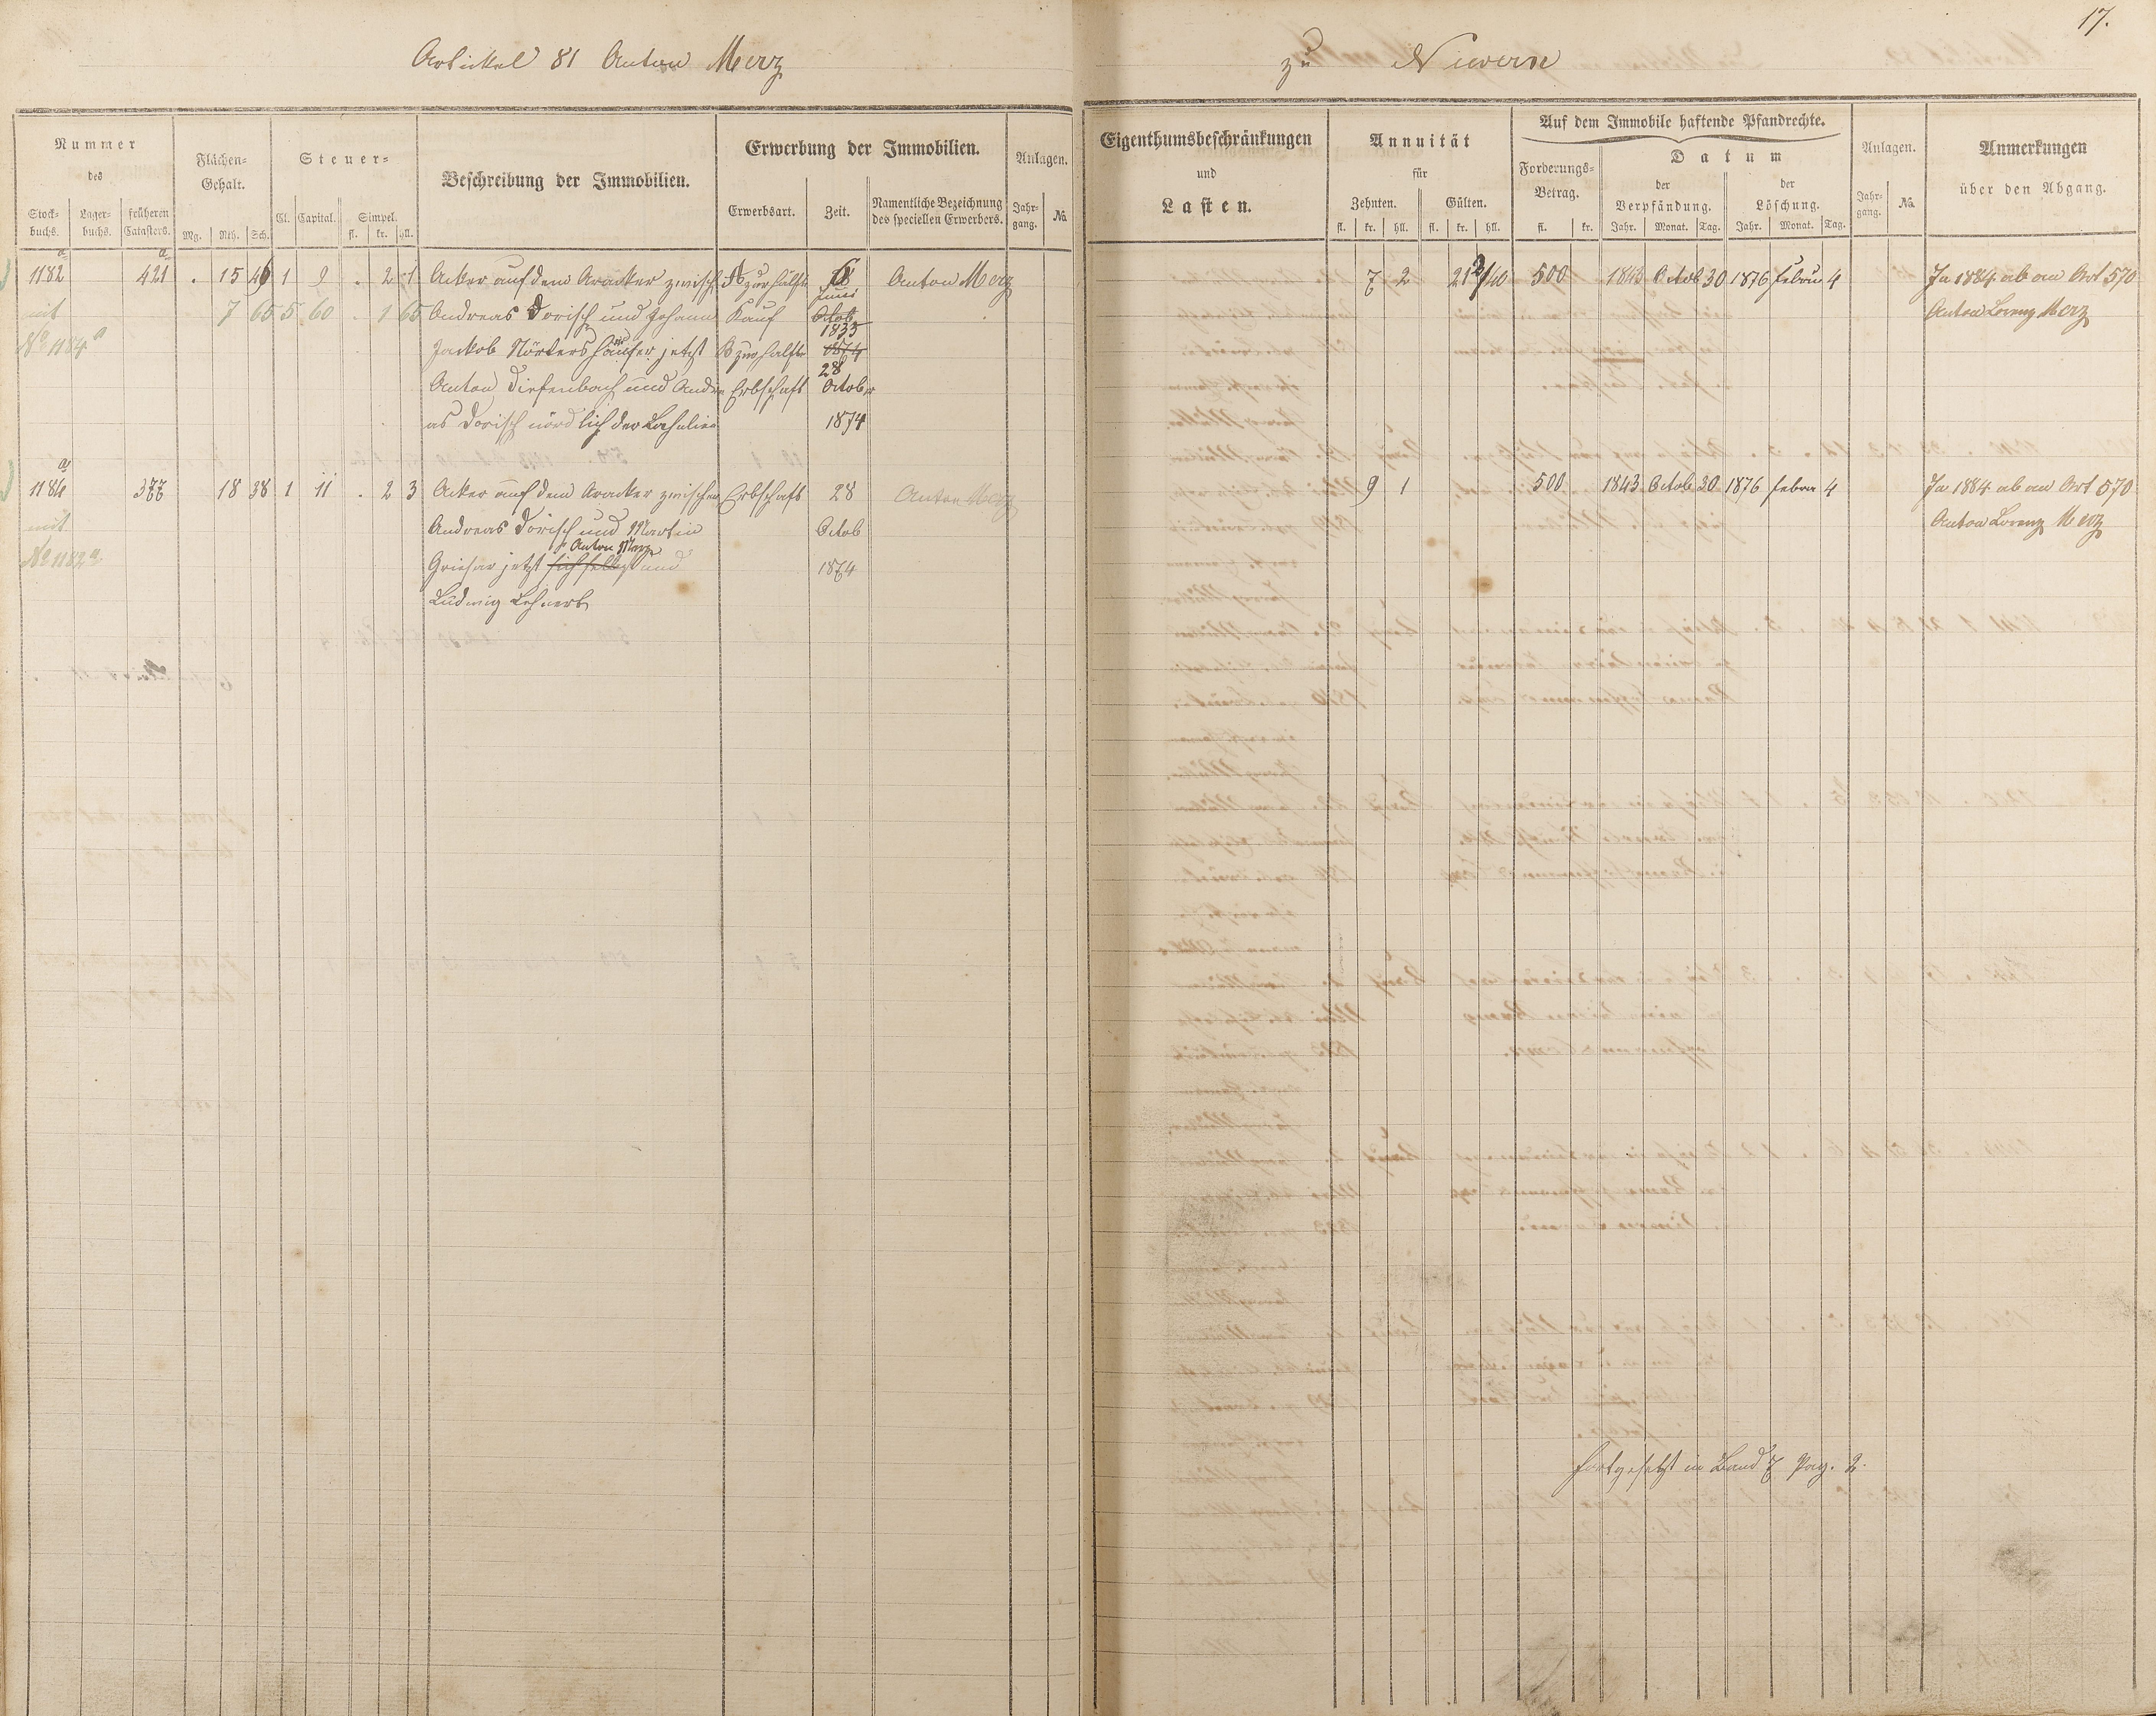 17.
Artickel 81 Anton Merz
zu Nievern
Nummer
des
Stock-
buchs.
Lager-
buchs.
früheren
Catasters.
Flächen-
Gehalt.
Mg. Rth. Sch.
Steuer-
Cl. Capital. Simpel.
fl. kr. hll.
Beschreibung der Immobilien.
Erwerbung der Immobilien.
Erwerbsart.
Zeit.
Namentliche Bezeichnung
des speciellen Erwerbers.
Anlagen.
Jahr-
gang.
№
Eigenthumsbeschränkungen
und
Lasten.
Annuität
für
Zehnten. Gülten.
fl. kr. hll. fl. kr. hll.
Auf dem Immobile haftende Pfandrechte.
Forderungs-
Betrag.
fl. kr.
Datum
der
Verpfändung.
Jahr. Monat. Tag.
der
Löschung.
Jahr. Monat. Tag.
Anlagen.
Jahr-
gang.
№
Anmerkungen
über den Abgang.
a a
1182 421 . 15 46 1 9 . 2 1 Acker auf dem Aracker zwisch A zur Hälfte Anton Merz 7 2 500 1843 Octob 30 1876 Febru 4 In 1884 ab an Art 570
mit 7 65 5 60 . 1 65 Andreas Dorisch und Johann Kauf Juni Octob Anton Lorenz Merz
No 1184 a Jackob Nörtershäuser jetzt B zur Halfte 1833 1874
Anton Diefenbach und Andre Erbschaft 28 October
as Dorisch nördlich der 1874
a
1184 377 18 38 1 11 . 2 3 Acker auf dem Aracker zwischen Erbschaft 28 Anton Merz 9 1 500 1843 Octob 30 1876 Febru 4 In 1884 ab an Art 570
mit Andreas Dorisch und Martin Octob Anton Lorenz Merz
No 1182 a Anton Merz
Griesar jetzt sich selbst und 1874
Ludwig Lehnert
Fortgesetzt in Band 7 Pag. 2.